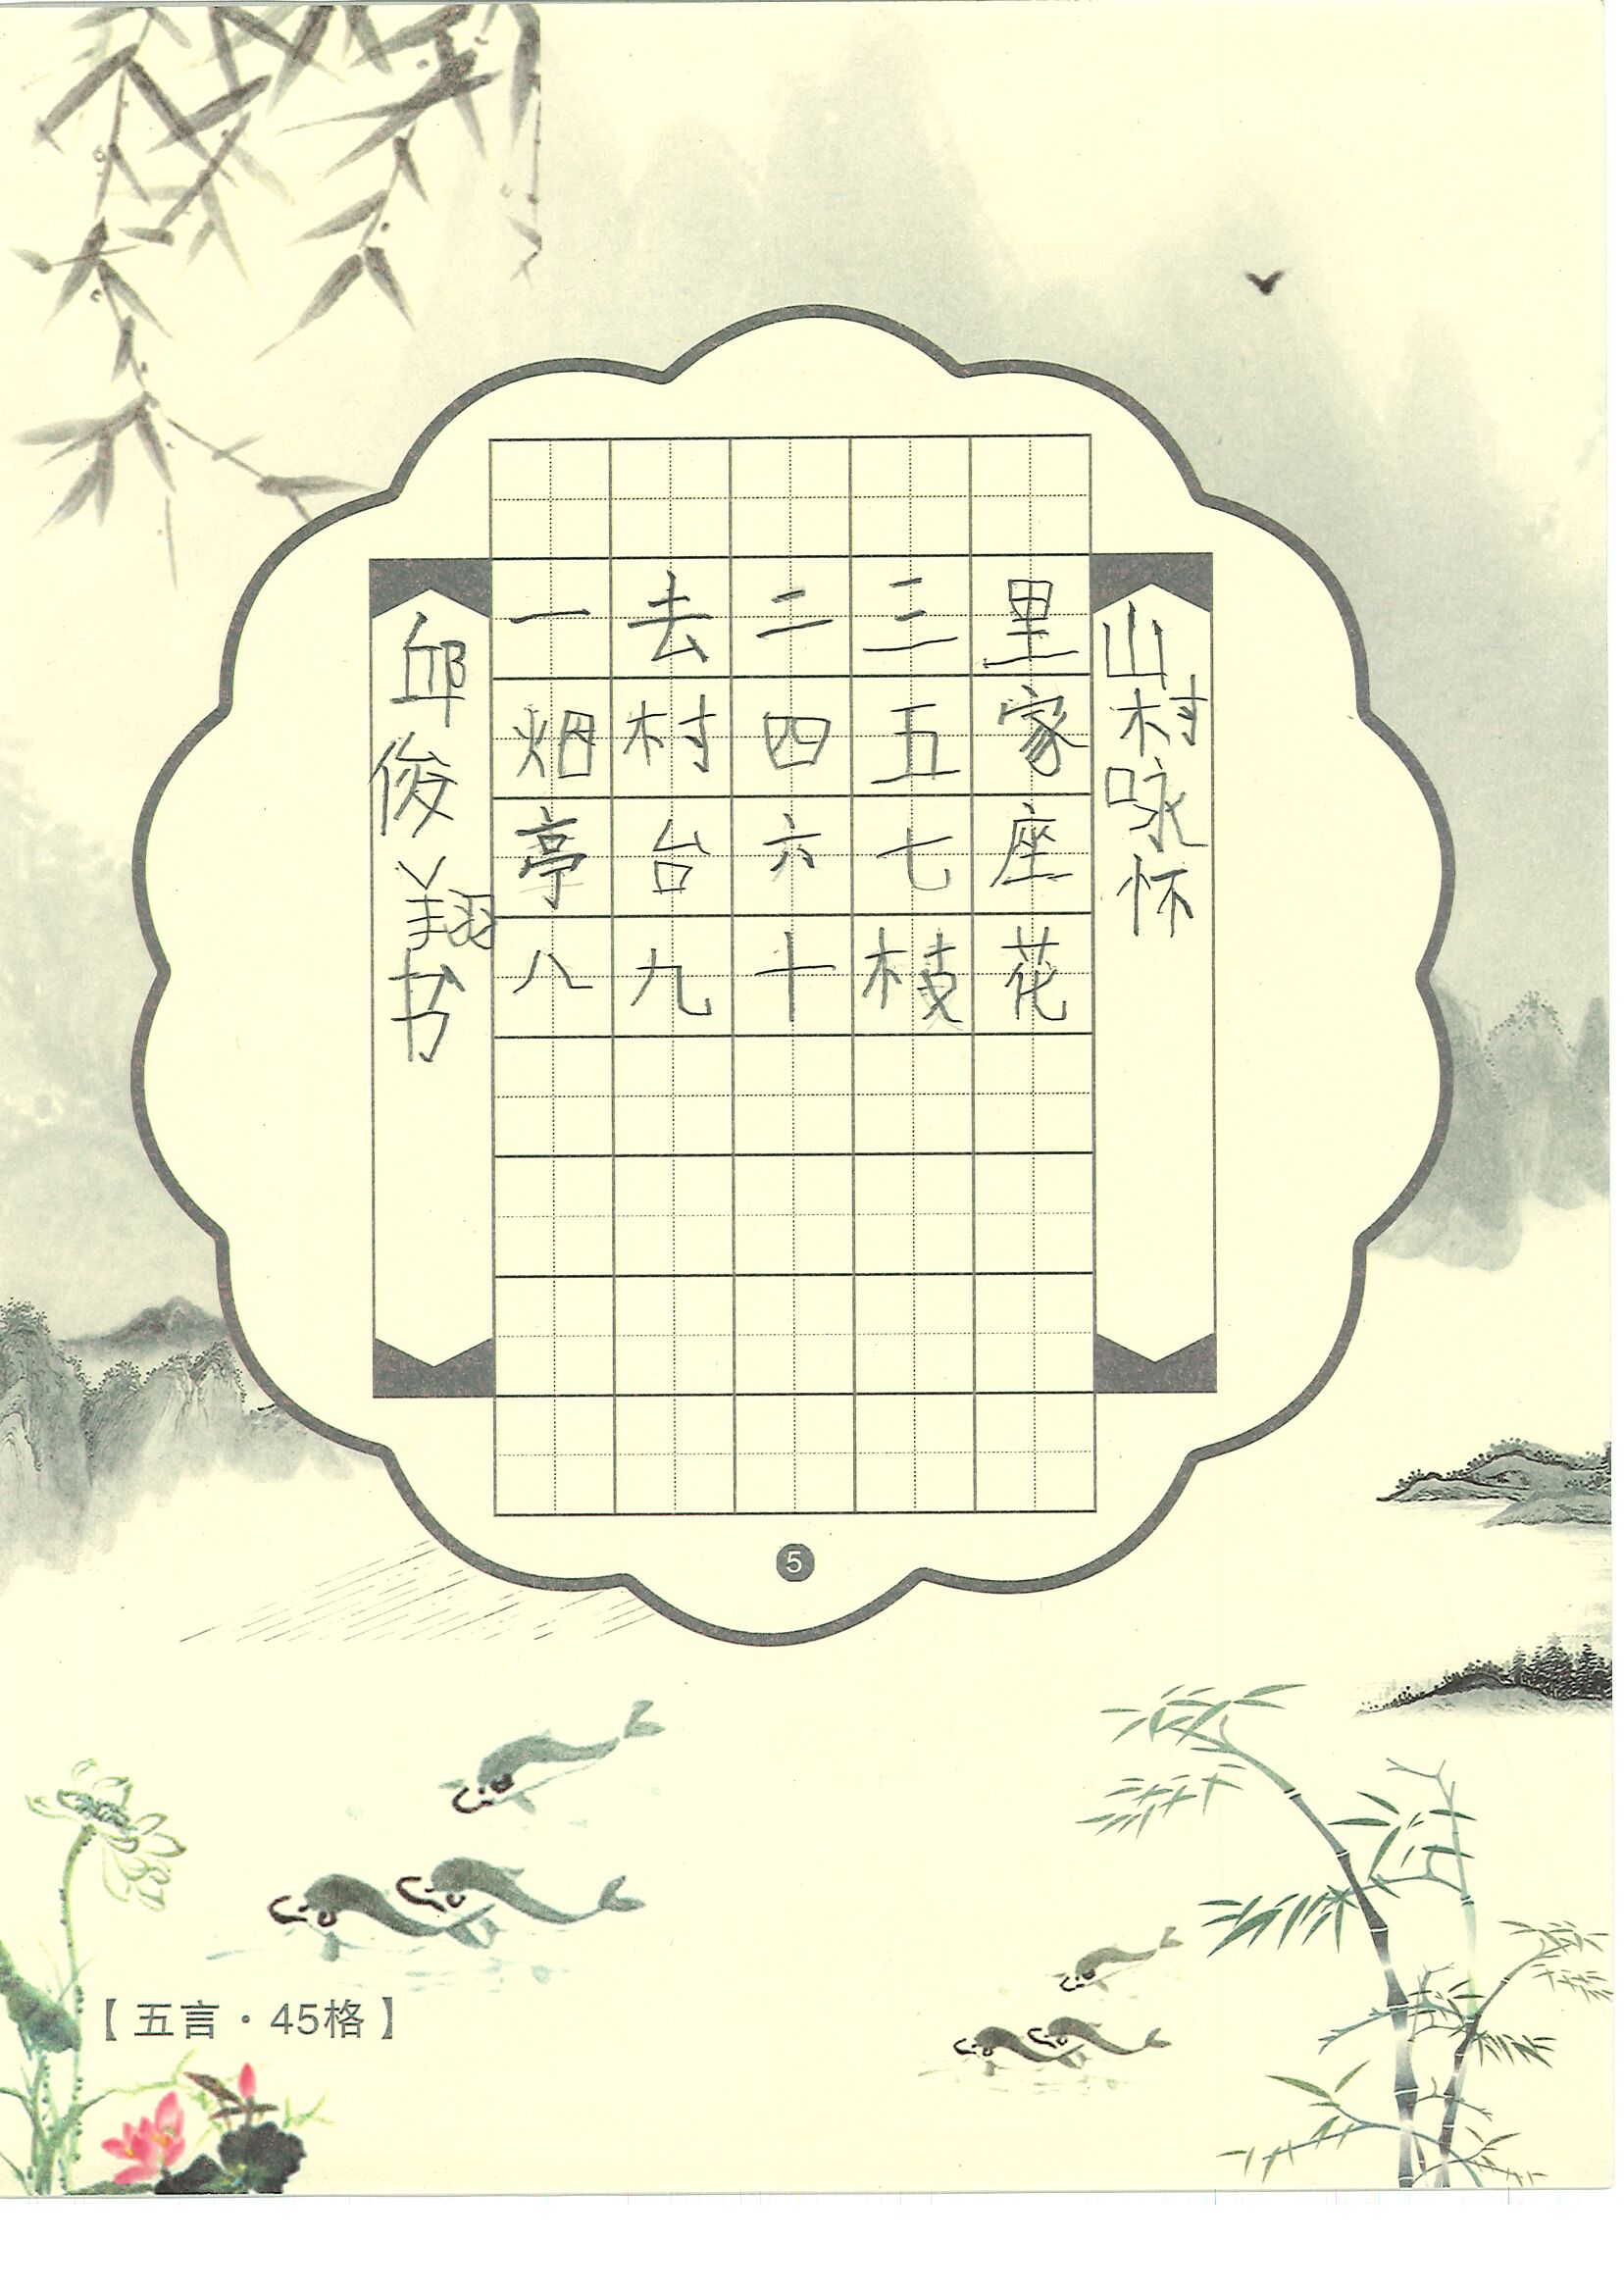 山村咏怀
一去二三里
烟村四五家
亭台六七座
八九十枝花
邱俊翔书
5
【五言·45格】